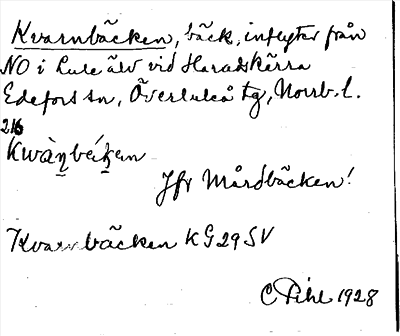 Kvarnbäcken, bäck, inflyter från
NO i Lule älv vid Haradskärra
Edefors sn, Överluleå tg, Norrb. l.
216
Kwàṇbéḱen
Jfr Mårdbäcken!
Kvarnbäcken KG 29 SV
C Pihl 1928